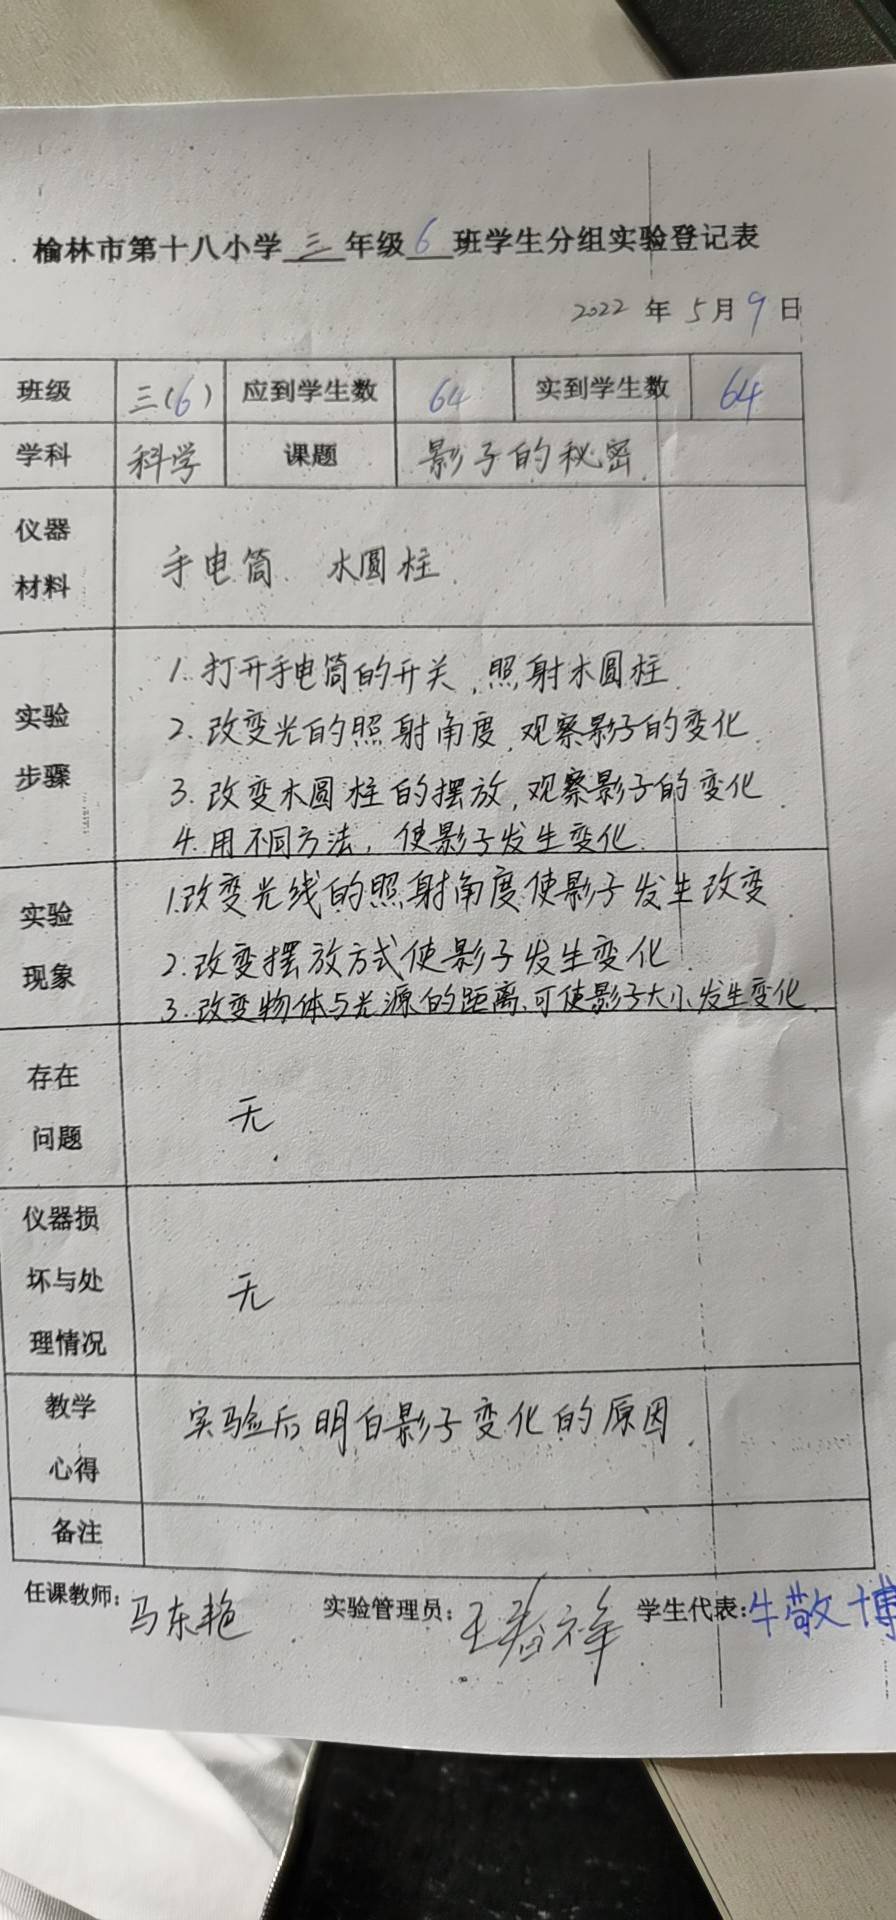 榆林市第十八小学三年级6班学生分组实验登记表
2022年5月9日
班级 三(6) 应到学生数 64 实到学生数 64
学科 科学 课题 影子的秘密
仪器
材料
手电筒 木圆柱
实验
步骤
1.打开手电筒的开关,照射木圆柱
2.改变光的照射角度,观察影子的变化
3.改变木圆柱的摆放,观察影子的变化
4.用不同方法,使影子发生变化.
实验
现象
1.改变光线的照射角度使影子发生改变
2.改变摆放方式使影子发生变化.
3.改变物体与光源的距离,可使影子大小发生变化.
存在
问题
无
仪器损
坏与处
理情况
无
教学
心得
实验后明白影子变化的原因.
备注
任课教师:马东艳 实验管理员: 学生代表:牛敬博